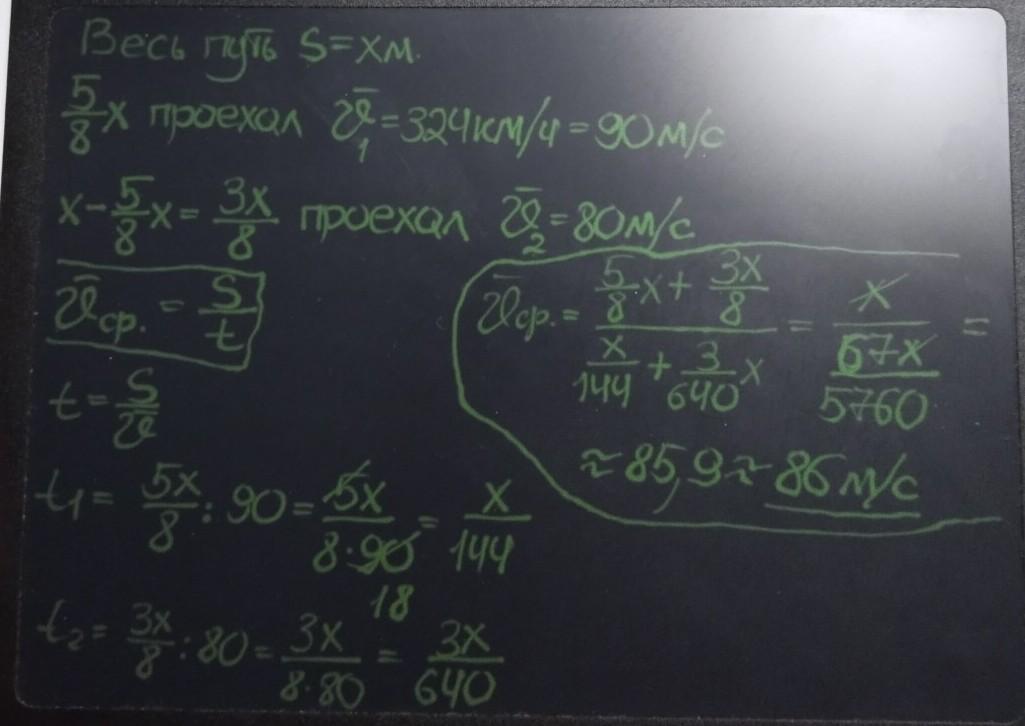 Весь путь S=xм.
5/8 x проехал v̄₁=324км/ч=90м/с
x-5/8 x=3x/8 проехал v̄₂=80м/с
v̄ср.=S/t
t=S/v
t₁=5x/8:90=5x/8·90=x/144
18
t₂=3x/8:80=3x/8·80=3x/640
v̄ср.=(5/8 x+3x/8)/(x/144+3/640 x)=x/(67x/5760)=
≈85,9≈86м/с